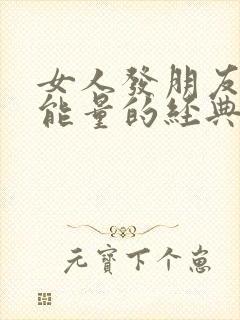 女人發朋友
能量的經典
元寶下个崽